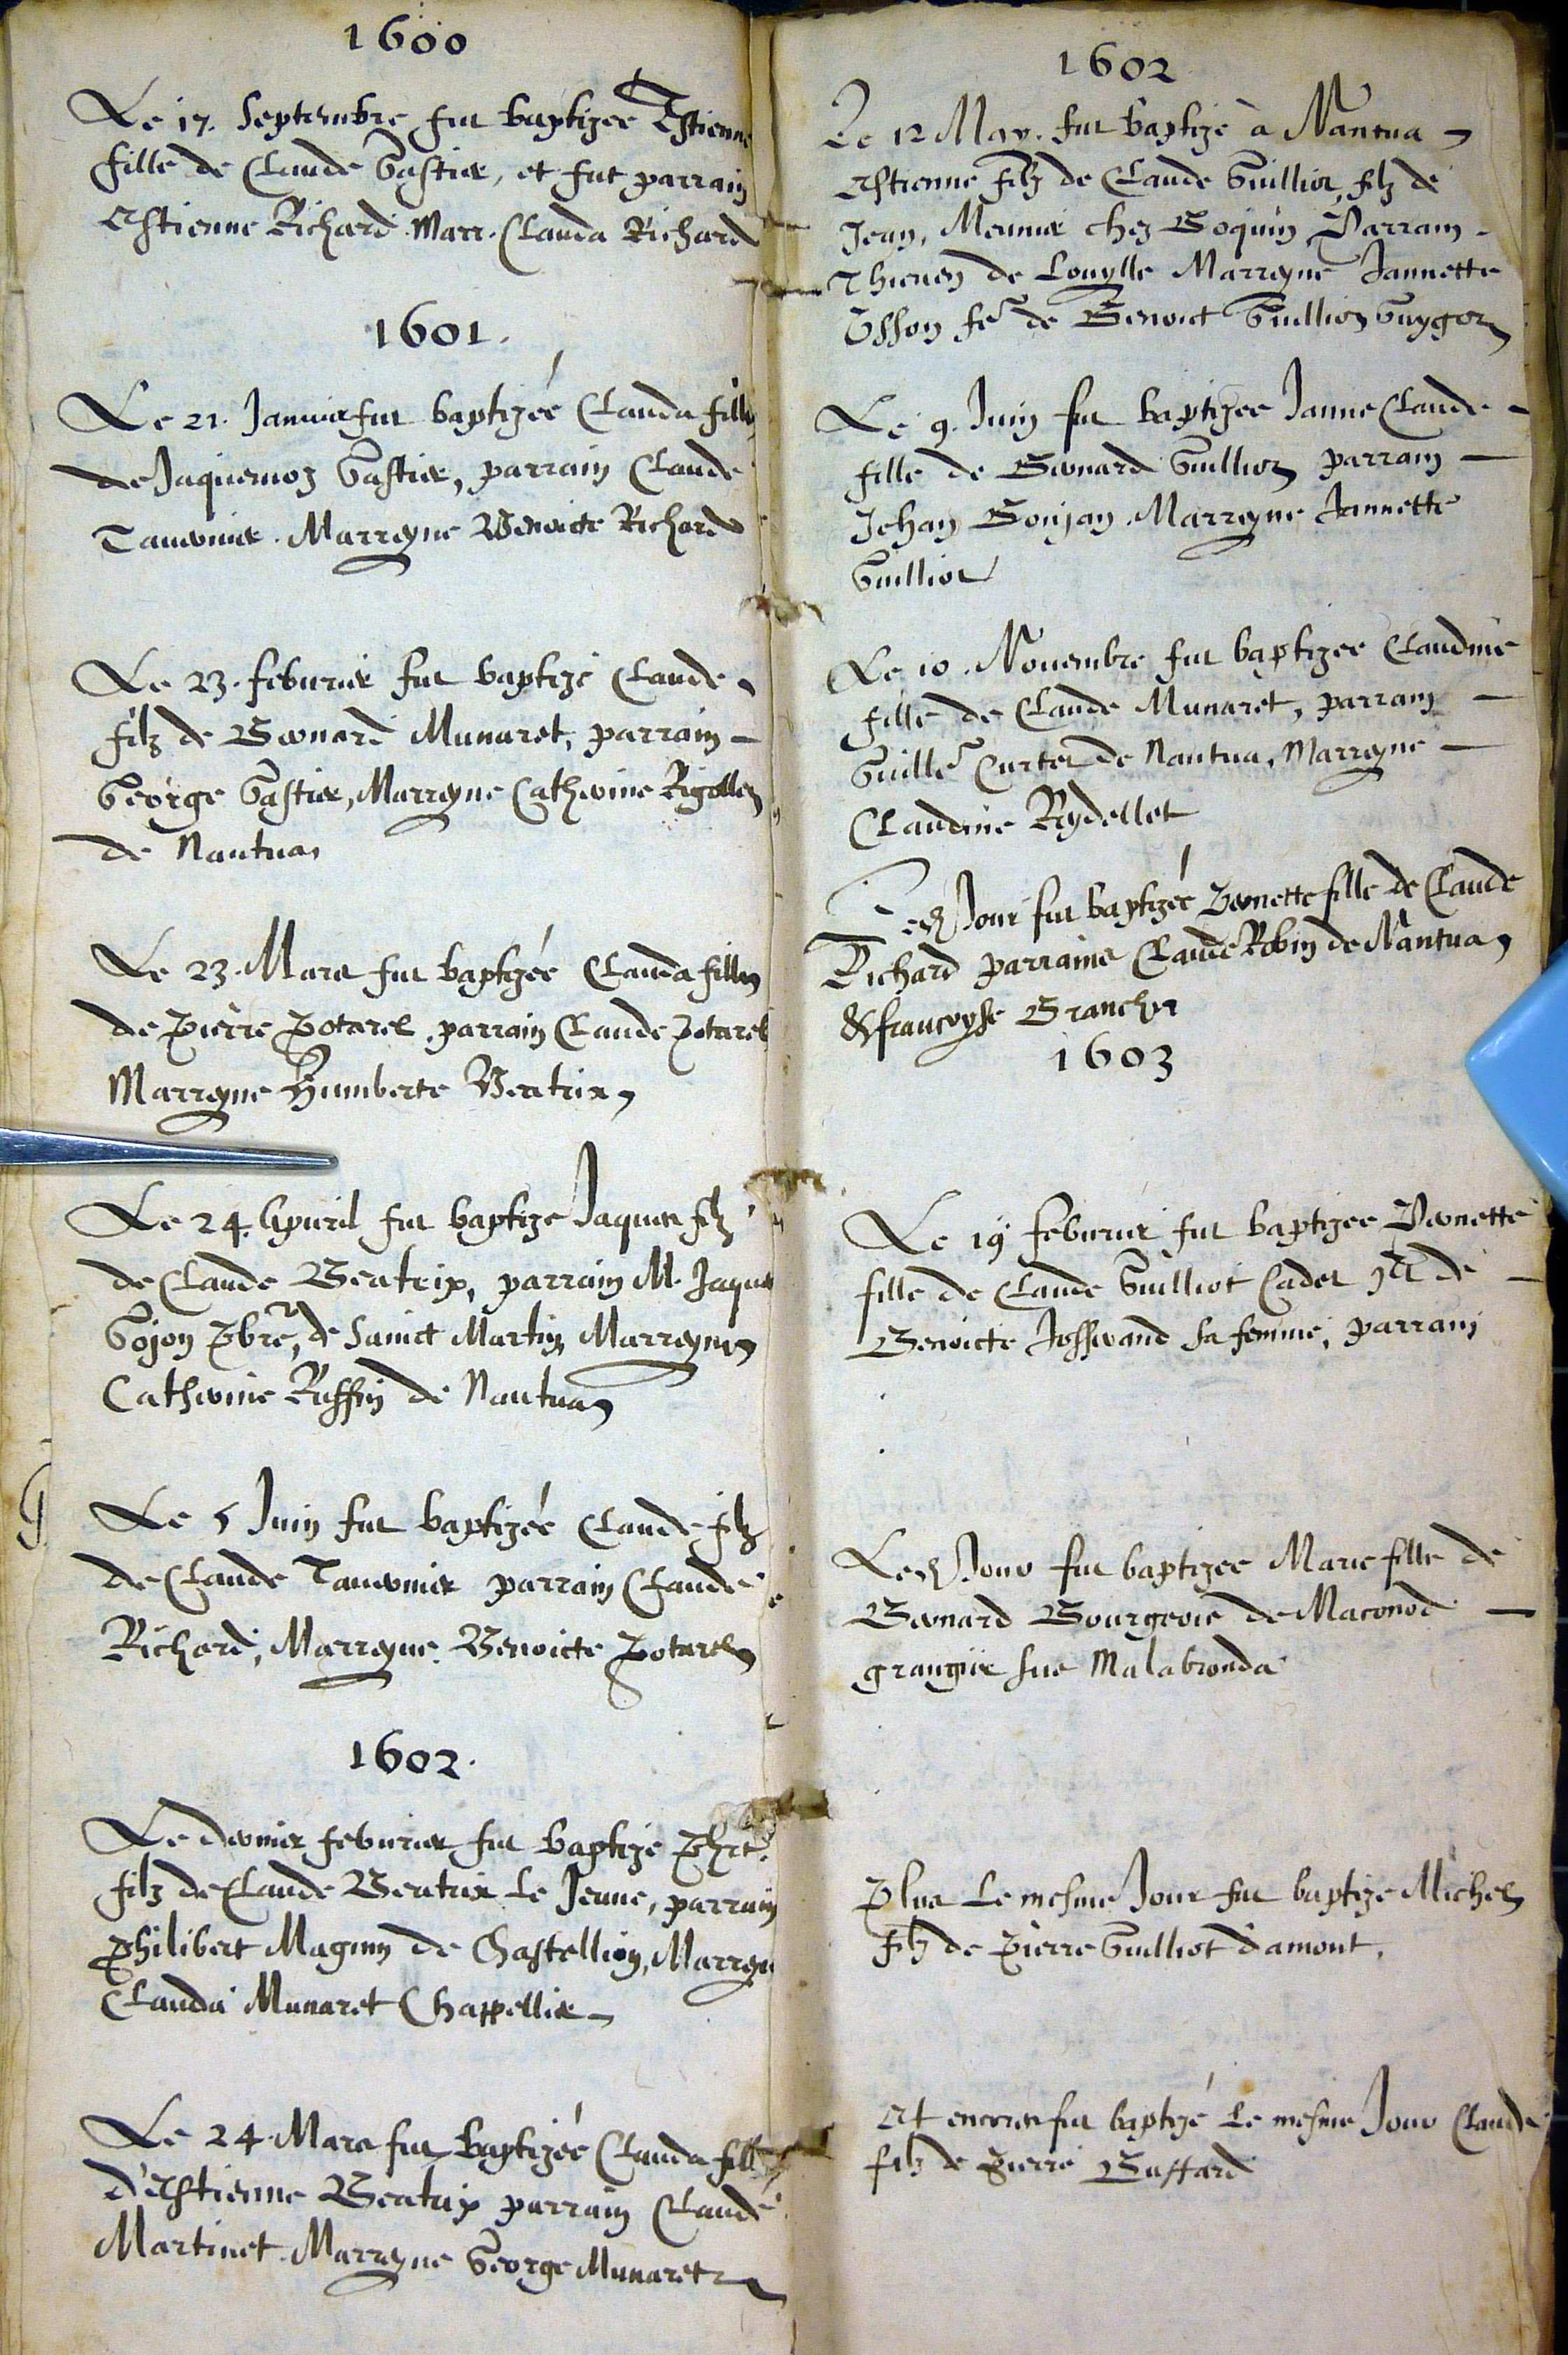 1600
Le 17. Septembre fut baptizee Estienne
fille de Claude Gastier, et fut parrain
Estienne Richard. Marr. Clauda Richard
1601.
Le 21. Januier fut baptizée Clauda fille
de Jaquemoz Gastier, parrain Claude
Tauernier. Marreyne Benoicte Richard
Le 23. feburier fut baptizé Claude
filz de Bernard Munaret, parrain
George Gastier, Marreyne Catherine Rigollet
de Nantua
Le 23. Mars fut baptizée Clauda fille
de Pierre Potarel, parrain Claude Potarel
Marreyne Humberte Beatrix
Le 24. Apuril fut baptizé Jaques filz
de Claude Beatrix, parrain M. Jaques
Gojon Pbre, de Sainct Martin Marreyne
Catherine Ruffin de Nantua
Le 5 Juin fut baptizée Claude filz
de Claude Tauernier parrain Claude
Richard, Marreyne. Benoicte Potarel
1602.
Le dernier feburier fut baptizé Phrt.
filz de Claude Beatrix le Jeune, parrain
Philibert Magnin de Chastellion, Marreyne
Clauda Munaret Chappellie
Le 24. Mars fut baptizée Clauda fille
d'Estienne Beatrix parrain Claude
Martinet. Marreyne George Munaret
1602
Le 12 May. fut baptizé à Nantua
Estienne filz de Claude Guilliot, filz de
Jean, Meunier chez Boquin Parrain
Thieuen de Louylle Marreyne Jannette
fe de Benoict Guilliot Guygoz
Le 9. Juin fut baptizee Janne Claude
fille de Bernard Guilliot parrain
Jehan Goujan. Marreyne Jannette
Guilliot
Le 10. Nouembre fut baptizee Claudine
fille de Claude Munaret, parrain
Guille Curtet de Nantua, Marreyne
Claudine Rydellet
Led Jour fut baptizée Pernette fille de Claude
Richard parrains Claude Robin de Nantua
& francoyse Branchy
1603
Le 19 feburier fut baptizee Pernette
fille de Claude Guilliot Cadet et de
Benoicte Josserand sa femme, parrain
Led Jour fut baptizee Marie fille de
Bernard Bourgeois de Maconod
grangier sus Malabronda
Plus le mesme Jour fut baptize Michel
filz de Pierre Guilliot damont,
Et encores fut baptizé le mesme Jour Claude
filz de Pierre Buffard